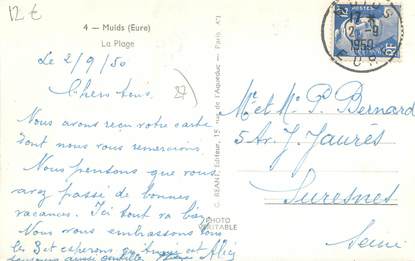 12 €
4 — Muids (Eure)
La Plage
Le 2/9/50
Chers tous.
27
Nous avons reçu votre carte
dont nous vous remercions.
Nous pensons que vous
avez passé de bonnes
vacances. Ici tout va bien
Nous vous embrassons tous
les 3 et
toujours aussi gentille
C. RÉANT, Editeur, 15, rue de l'Aqueduc — Paris
PHOTO
VÉRITABLE
POSTES
RF
2 -9
1950
Mr et Me P. Bernard
5 Av. J. Jaurès
Suresnes
Seine